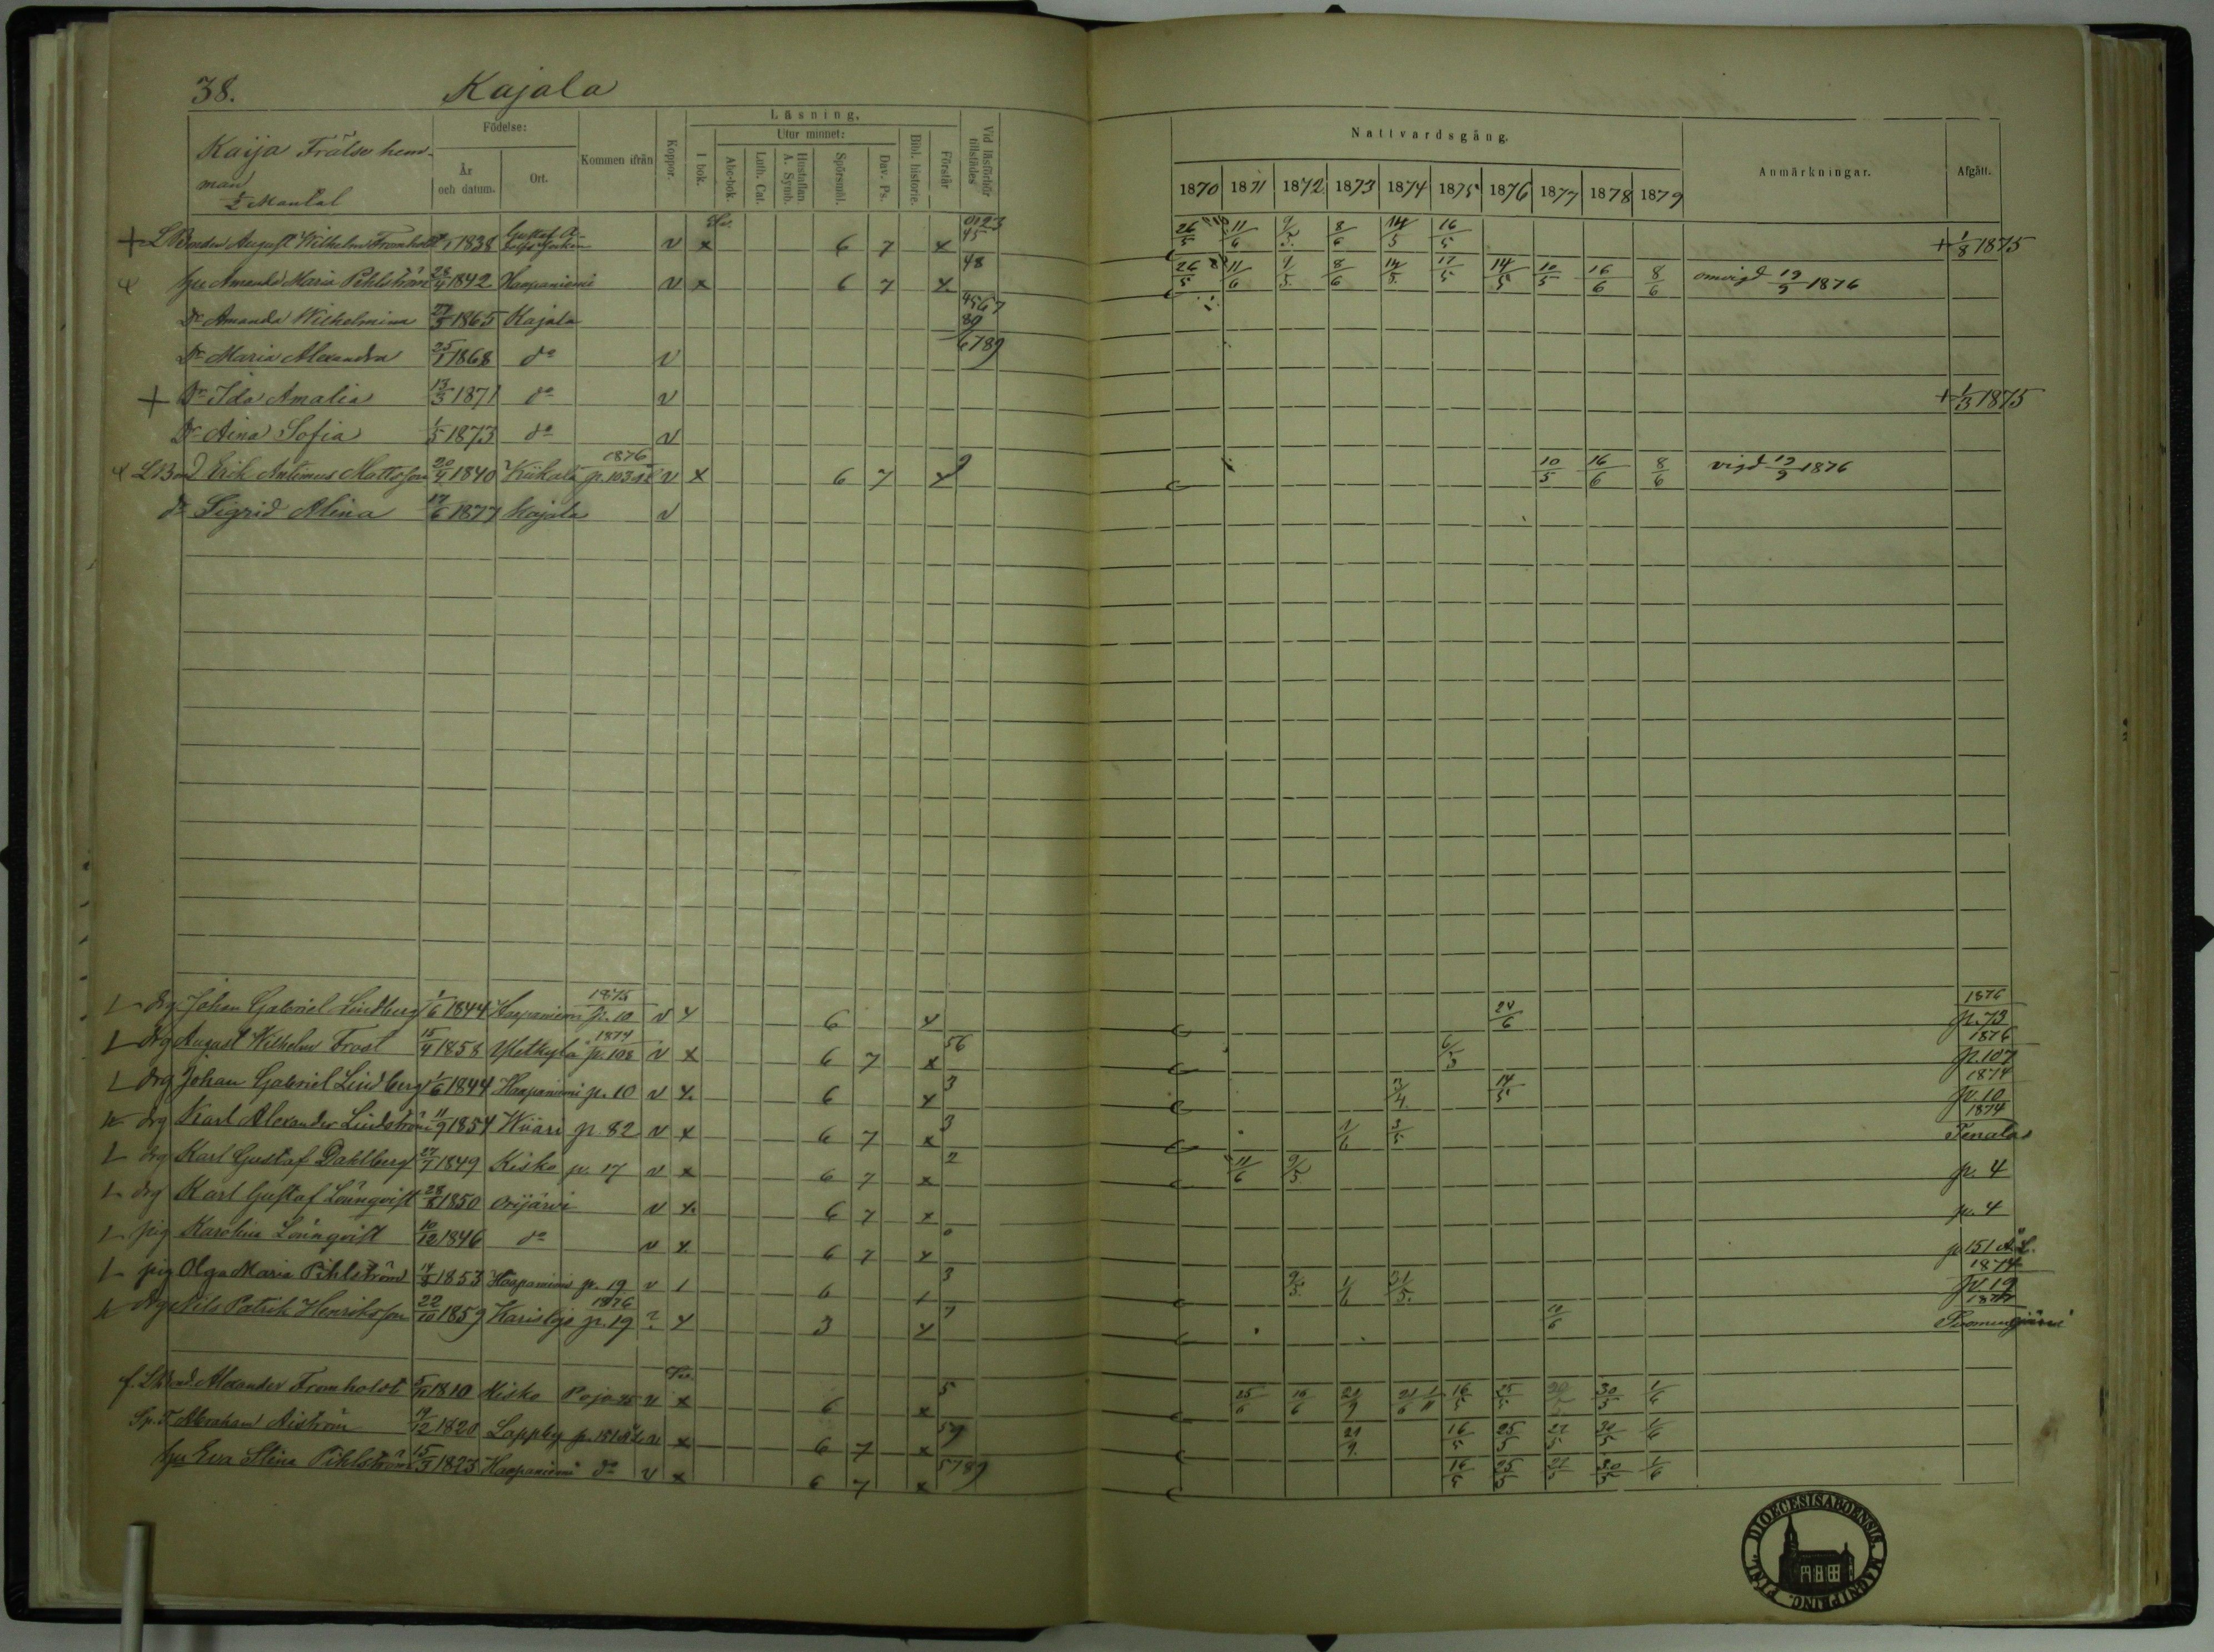 38. Kajala
Kaija Frälse hem-
man
1/2 Mantal
Födelse:
År och datum.
Ort.
Kommen ifrån
Koppor.
Läsning.
I bok.
Utur minnet:
Abc-bok.
Luth. Cat.
Hustaflan. A. Symb.
Spörsmål.
Dav. Ps.
Bibl. historie.
Förstår
Vid läsförhör tillstädes
Nattvardsgång.
1870 1871 1872 1873 1874 1875 1876 1877 1878 1879
Anmärkningar.
Afgått.
+ LBonden August Wilhelm Fromholdt 1838 v x 6 7 x 0123 45 26/5 11/6 9/5 8/6 14/5 16/5 + 1/8 1875
hu Amanda Maria Pihlström 28/4 1842 Haapaniemi v x 6 7 x 48 26/5 11/6 9/5 8/6 14/5 17/5 14/5 10/5 16/6 8/6 omvigd 19/9 1876
Dr Amanda Wilhelmina 27/5 1865 Kajala 4567 89
Dr Maria Alexandra 25/1 1868 do v 6789
+ Dr Ida Amalia 13/3 1871 do v + 1/3 1875
Dr Aina Sofia 1/5 1873 do v
LBond Erik Antinus Mattsson 20/4 1840 Kiikala 1876 p. 103 v x 6 7 x 9 10/5 16/6 8/6 vigd 19/9 1876
dr Sigrid Alina 17/6 1877 Kajala v
drg Johan Gabriel Lindberg 1/6 1844 Haapaniemi 1875 p. 10 v x 6 x 24/6 1876 p. 73
drg August Wilhelm Frost 15/4 1858 Metkylä 1874 p. 108 v x 6 7 x 56 6/3 1876 p. 107
drg Johan Gabriel Lindberg 1/6 1844 Haapaniemi p. 10 v x 6 x 3 14/5 1874 p. 10
drg Karl Alexander Lindström 11/9 1854 Wiiari p. 82 v x 6 7 x 3 1/6 3/5 1874 Tenala
drg Karl Gustaf Dahlberg 27/7 1849 Kisko p. 17 v x 6 7 x 2 11/6 9/5 p. 4
drg Karl Gustaf Lönnqvist 28/8 1850 Orijärvi v x 6 7 x p. 4
pig Karolina Lönnqvist 10/12 1846 do v x 6 7 x 0 p. 151 A.L.
pig Olga Maria Pihlström 14/8 1853 Haapaniemi p. 19 v 1 6 1 3 9/5 1/6 31/5 1874 p. 19
drg Nils Patrik Henriksson 22/10 1859 Karislojo 1876 p. 19 ? x 3 x 7 10/6 1877 Suomusjärvi
f. LBond. Alexander Fromholdt 1810 Kisko Pojo 75 v x 6 x 5 25/6 16/6 21/9 21/6 1/11 16/5 25/5 20/5 30/5 1/6
Sp. T. Abraham Aiström 19/12 1820 Lappby p. 151 v x 6 7 x 59 21/9 16/5 25/5 21/5 30/5 1/6
hu Eva Stina Pihlström 15/3 1823 Haapaniemi do v x 6 7 x 5789 16/5 25/5 21/5 30/5 1/6
DIOECESIS ABOENSIS. MAGNI PRINC. FINL.